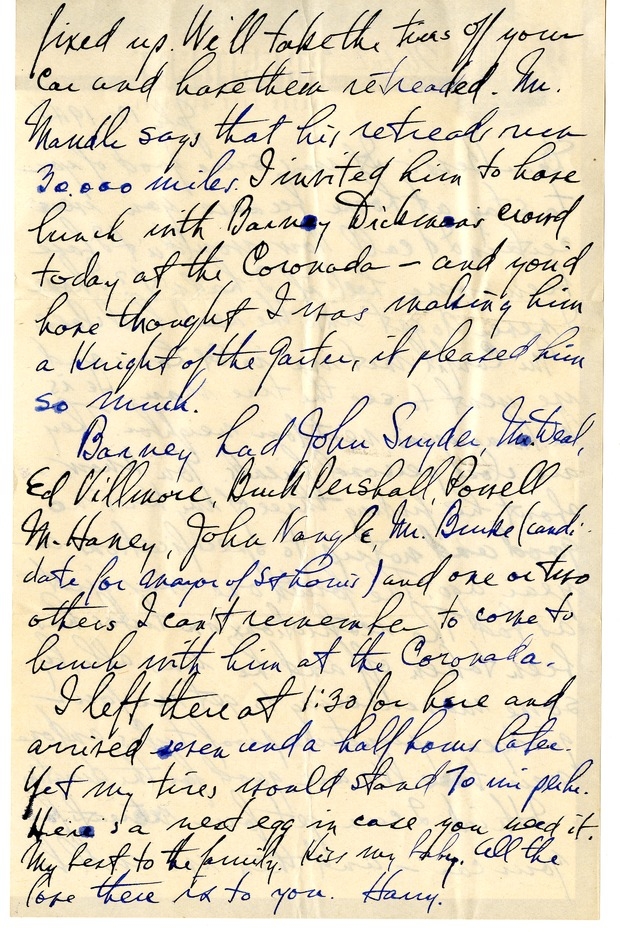 fixed up. We'll take the tires off your
car and have them retreaded. Mr.
says that his retreads run
30,000 miles. I invited him to have
lunch with Barney Dickman's crowd
today at the Coronada - and you'd
have thought I was making him
a Knight of the Garter, it pleased him
so much.
Barney had John Snyder, Mr. Neal,
Ed Villmore, Buck Pershall, Powell
McHaney, John Nangle, Mr. Burke (candi-
date for mayor of St Louis) and one or two
others I can't remember to come to
lunch with him at the Coronada.
I left there at 1:30 for here and
arrived seven and a half hours later.
Yet my tires would stand 70 mi per hr.
Here's a nest egg in case you need it.
My best to the family. Kiss my baby. All the
love there is to you. Harry.